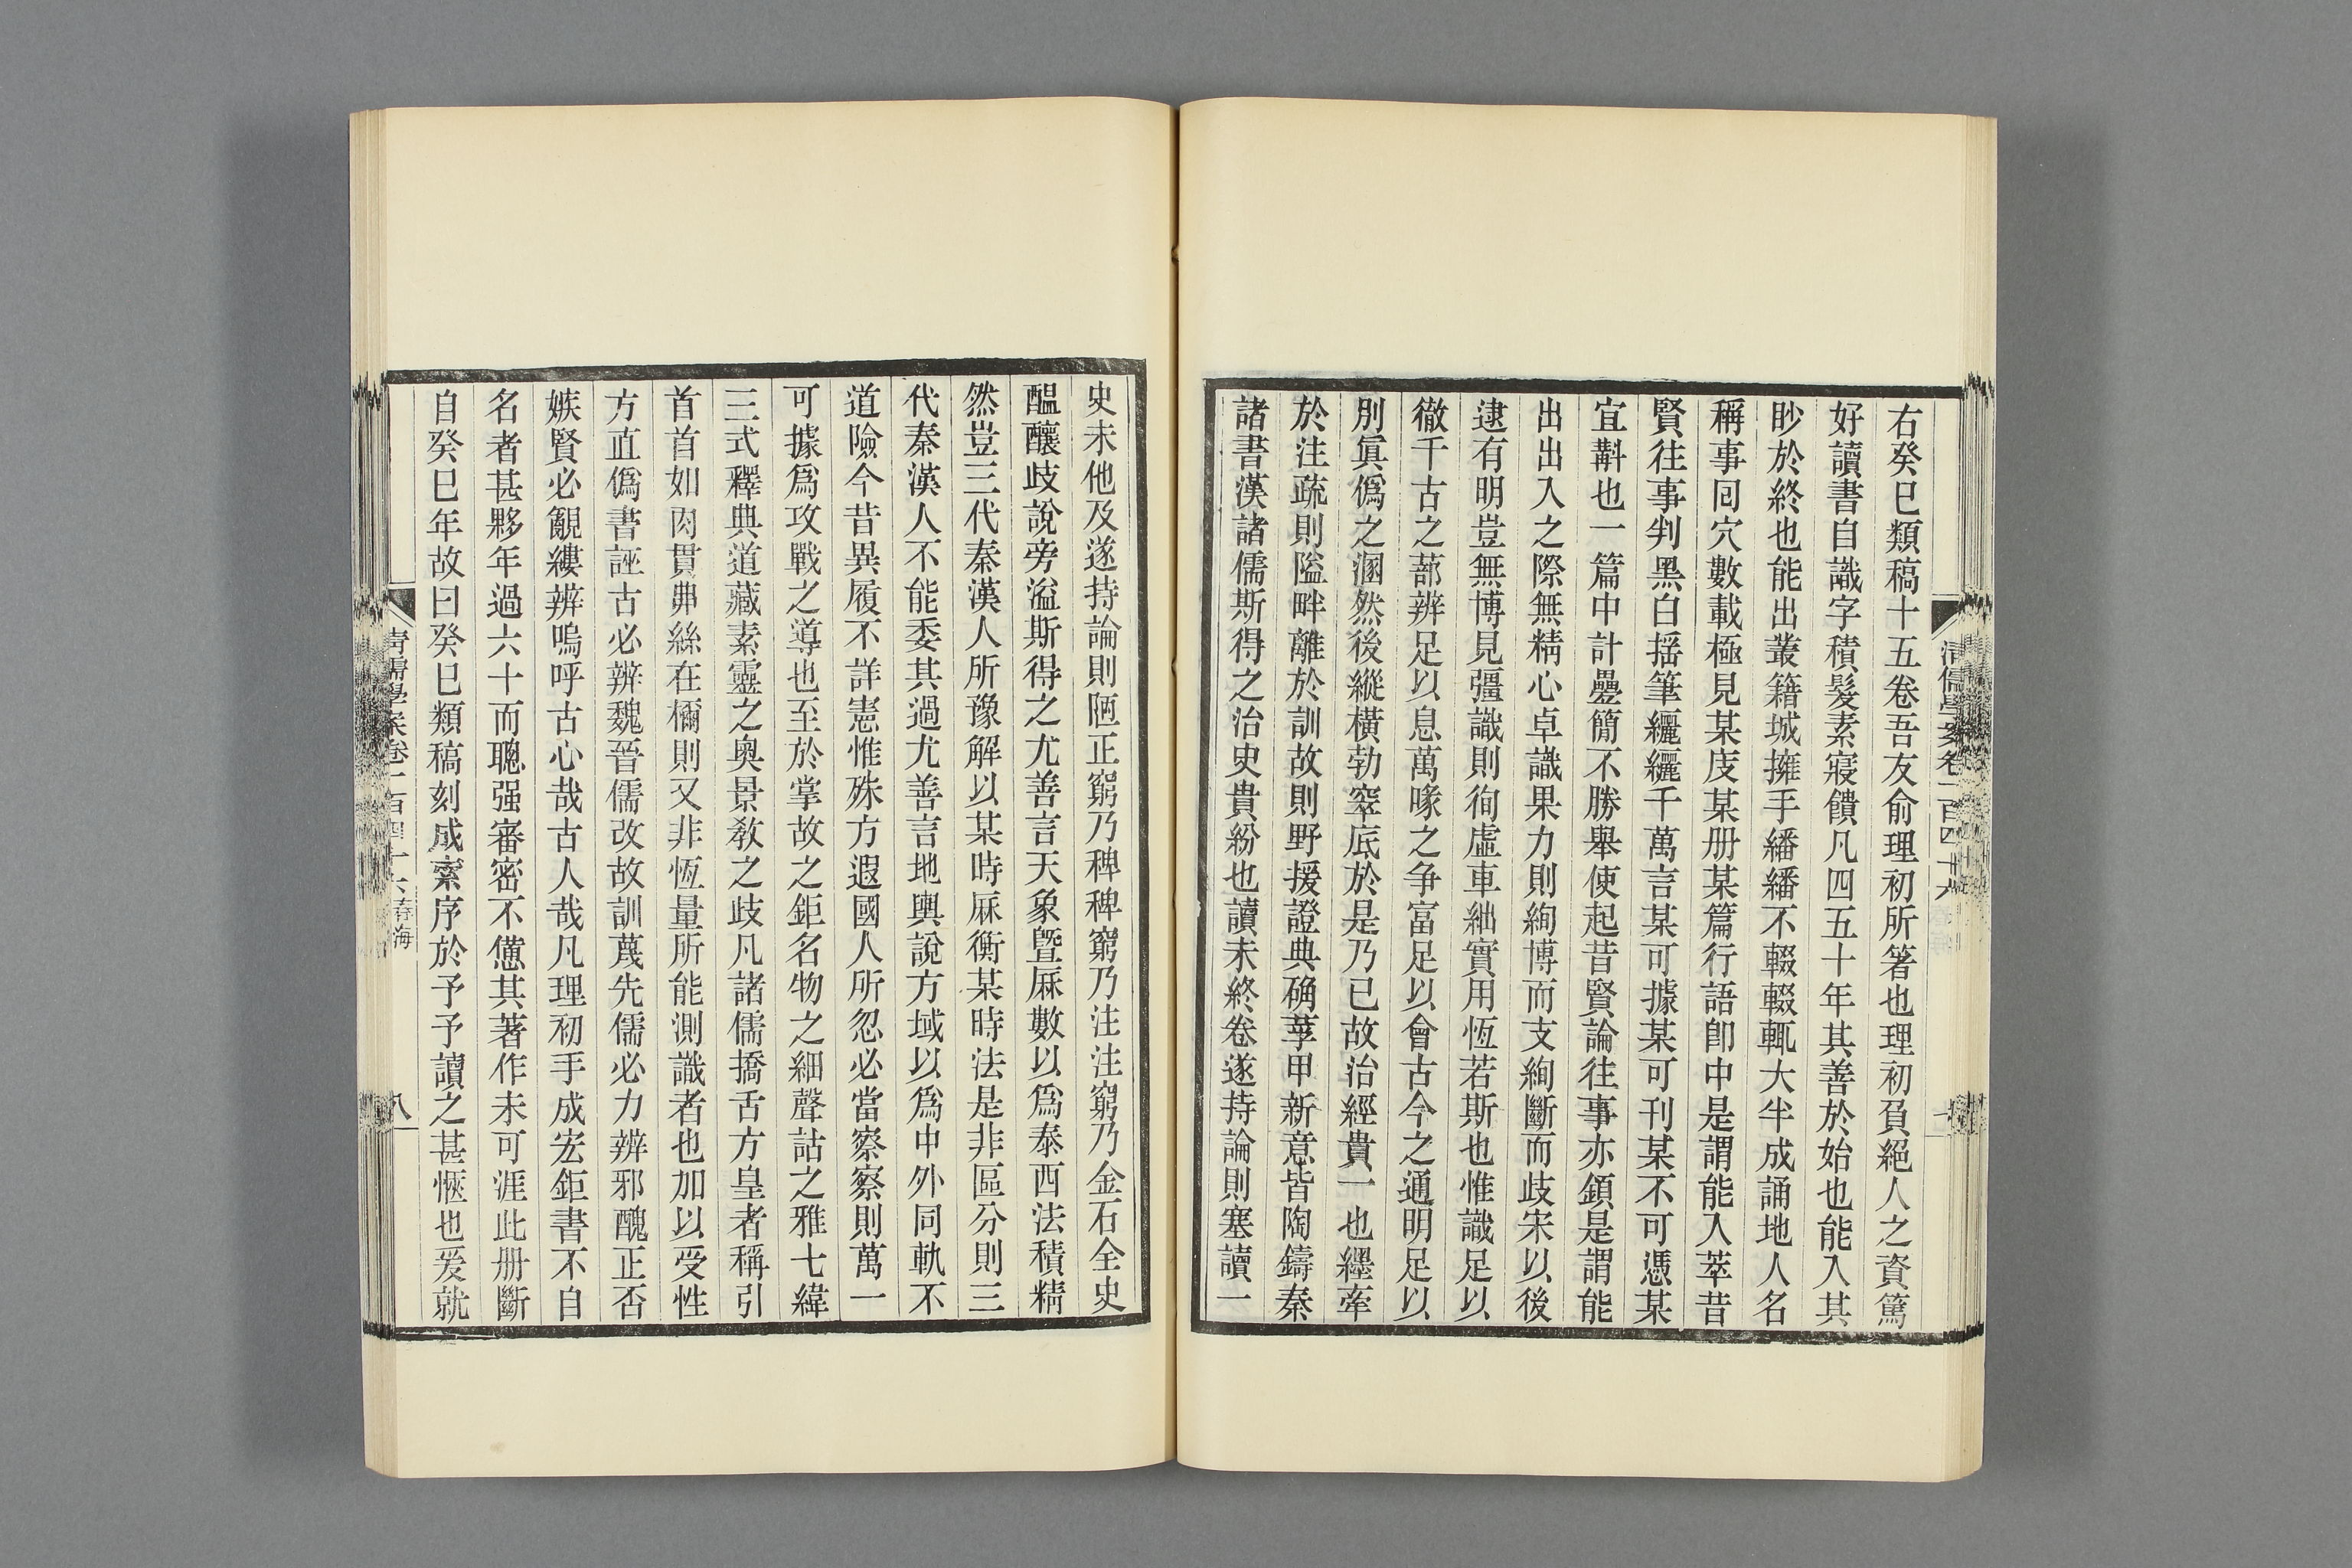 右癸巳類稿十五卷吾友俞理初所箸也理初負絕人之資篤
好讀書自識字積髮素寢饋凡四五十年其善於始也能入其
眇於終也能出叢籍城擁手繙繙不輟輟輒大半成誦地人名
稱事囘穴數載極見某庋某册某篇行語卽中是謂能入萃昔
賢往事判黑白搖筆纚纚千萬言某可據某可刊某不可憑某
宜斠也一篇中計疉簡不勝舉使起昔賢論往事亦頷是謂能
出出入之際無精心卓識果力則絢博而支絢斷而歧宋以後
逮有明豈無博見彊識則徇虛車絀實用恆若斯也惟識足以
徹千古之蔀辨足以息萬喙之争富足以會古今之通明足以
別眞僞之溷然後縱橫勃窣底於是乃已故治經貴一也纆牽
於注疏則隘畔離於訓故則野援證典确莩甲新意皆陶鑄秦
諸書漢諸儒斯得之治史貴紛也讀未終卷遂持論則塞讀一
史未他及遂持論則陋正窮乃稗稗窮乃注注窮乃金石全史
醞釀歧說旁溢斯得之尤善言天象曁厤數以爲泰西法積精
然豈三代秦漢人所豫解以某時厤衡某時法是非區分則三
代秦漢人不能委其過尤善言地輿說方域以爲中外同軌不
道險今昔異履不詳憲惟殊方遐國人所忽必當察察則萬一
可據爲攻戰之導也至於掌故之鉅名物之細聲詁之雅七緯
三式釋典道藏素靈之奧景敎之歧凡諸儒撟舌方皇者稱引
首首如肉貫丳絲在檷則又非恆量所能測識者也加以受性
方直僞書誣古必辨魏晉儒改故訓蔑先儒必力辨邪醜正否
嫉賢必覼縷辨嗚呼古心哉古人哉凡理初手成宏鉅書不自
名者甚夥年過六十而聰强審密不㒜其著作未可涯此册斷
自癸巳年故曰癸巳類稿刻成索序於予予讀之甚愜也爰就
清儒學案卷一百四十六 春海
八